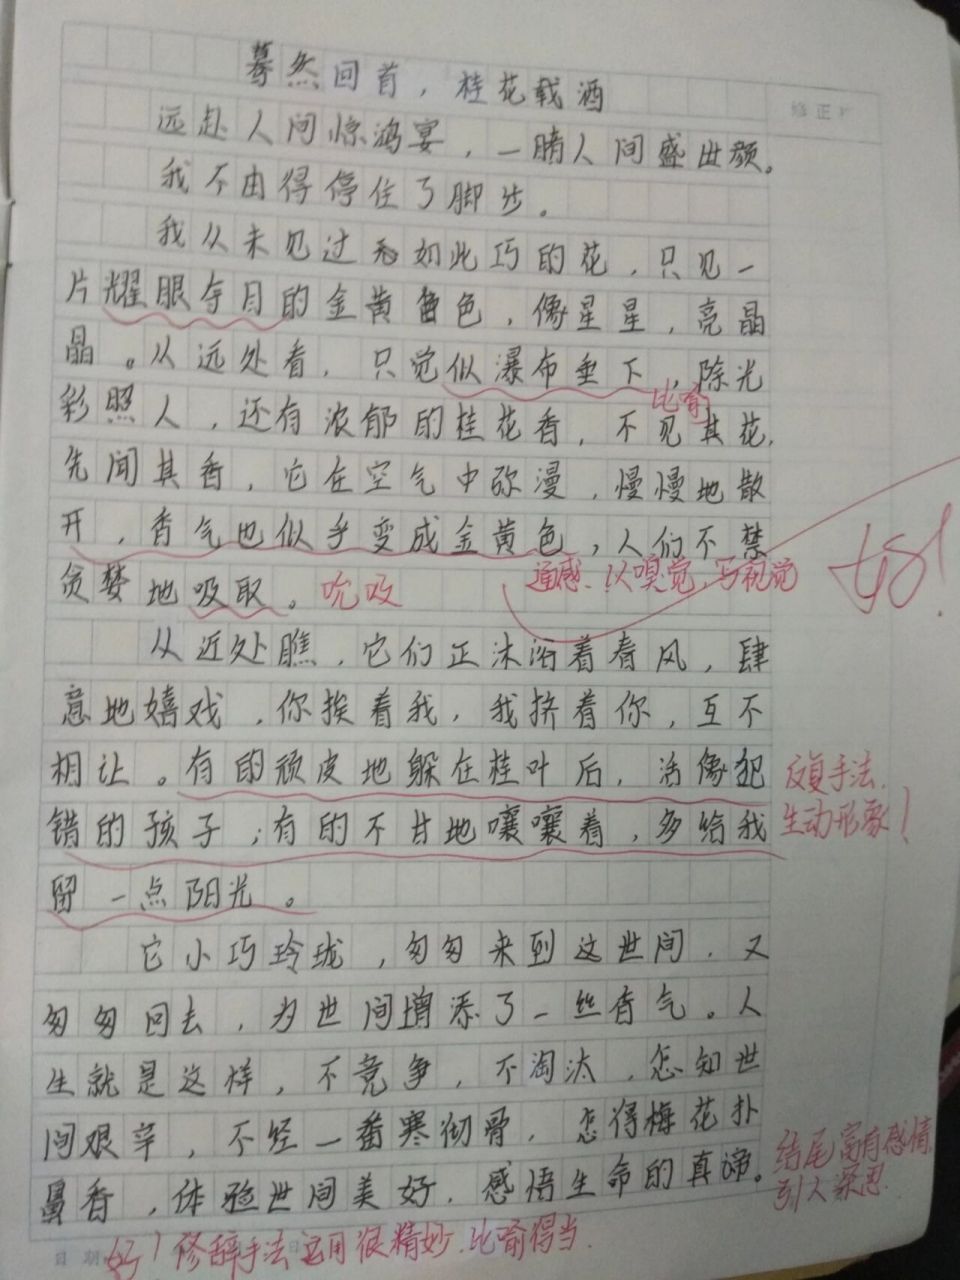 蓦然回首，桂花载酒
修正
远赴人间惊鸿宴，一睹人间盛世颜。
我不由得停住了脚步。
我从未见过如此巧的花，只见一
片耀眼夺目的金黄色，像星星，亮晶
晶。从远处看，只觉似瀑布垂下，除光
比喻
彩照人，还有浓郁的桂花香，不见其花，
先闻其香，它在空气中弥漫，慢慢地散
开，香气也似乎变成金黄色，人们不禁
贪婪地吸取。吮吸
通感、以嗅觉写视觉
从近处瞧，它们正沐浴着春风，肆
意地嬉戏，你挨着我，我挤着你，互不
相让。有的顽皮地躲在桂叶后，活像犯
反复手法.
错的孩子；有的不甘地嚷嚷着，多给我
生动形象！
留一点阳光。
它小巧玲珑，匆匆来到这世间，又
匆匆回去，为世间增添了一丝香气。人
生就是这样，不竞争，不淘汰，怎知世
间艰辛，不经一番寒彻骨，怎得梅花扑
鼻香，体验世间美好，感悟生命的真谛。
结尾富有感情,
引人深思.
日期
好！修辞手法运用很精妙.比喻得当.